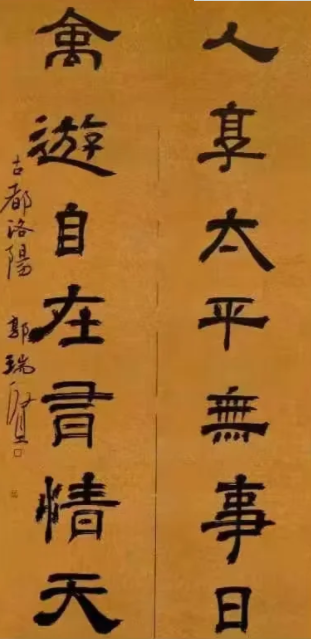 人享太平無事日
禽遊自在有情天
古都洛陽 郭瑞